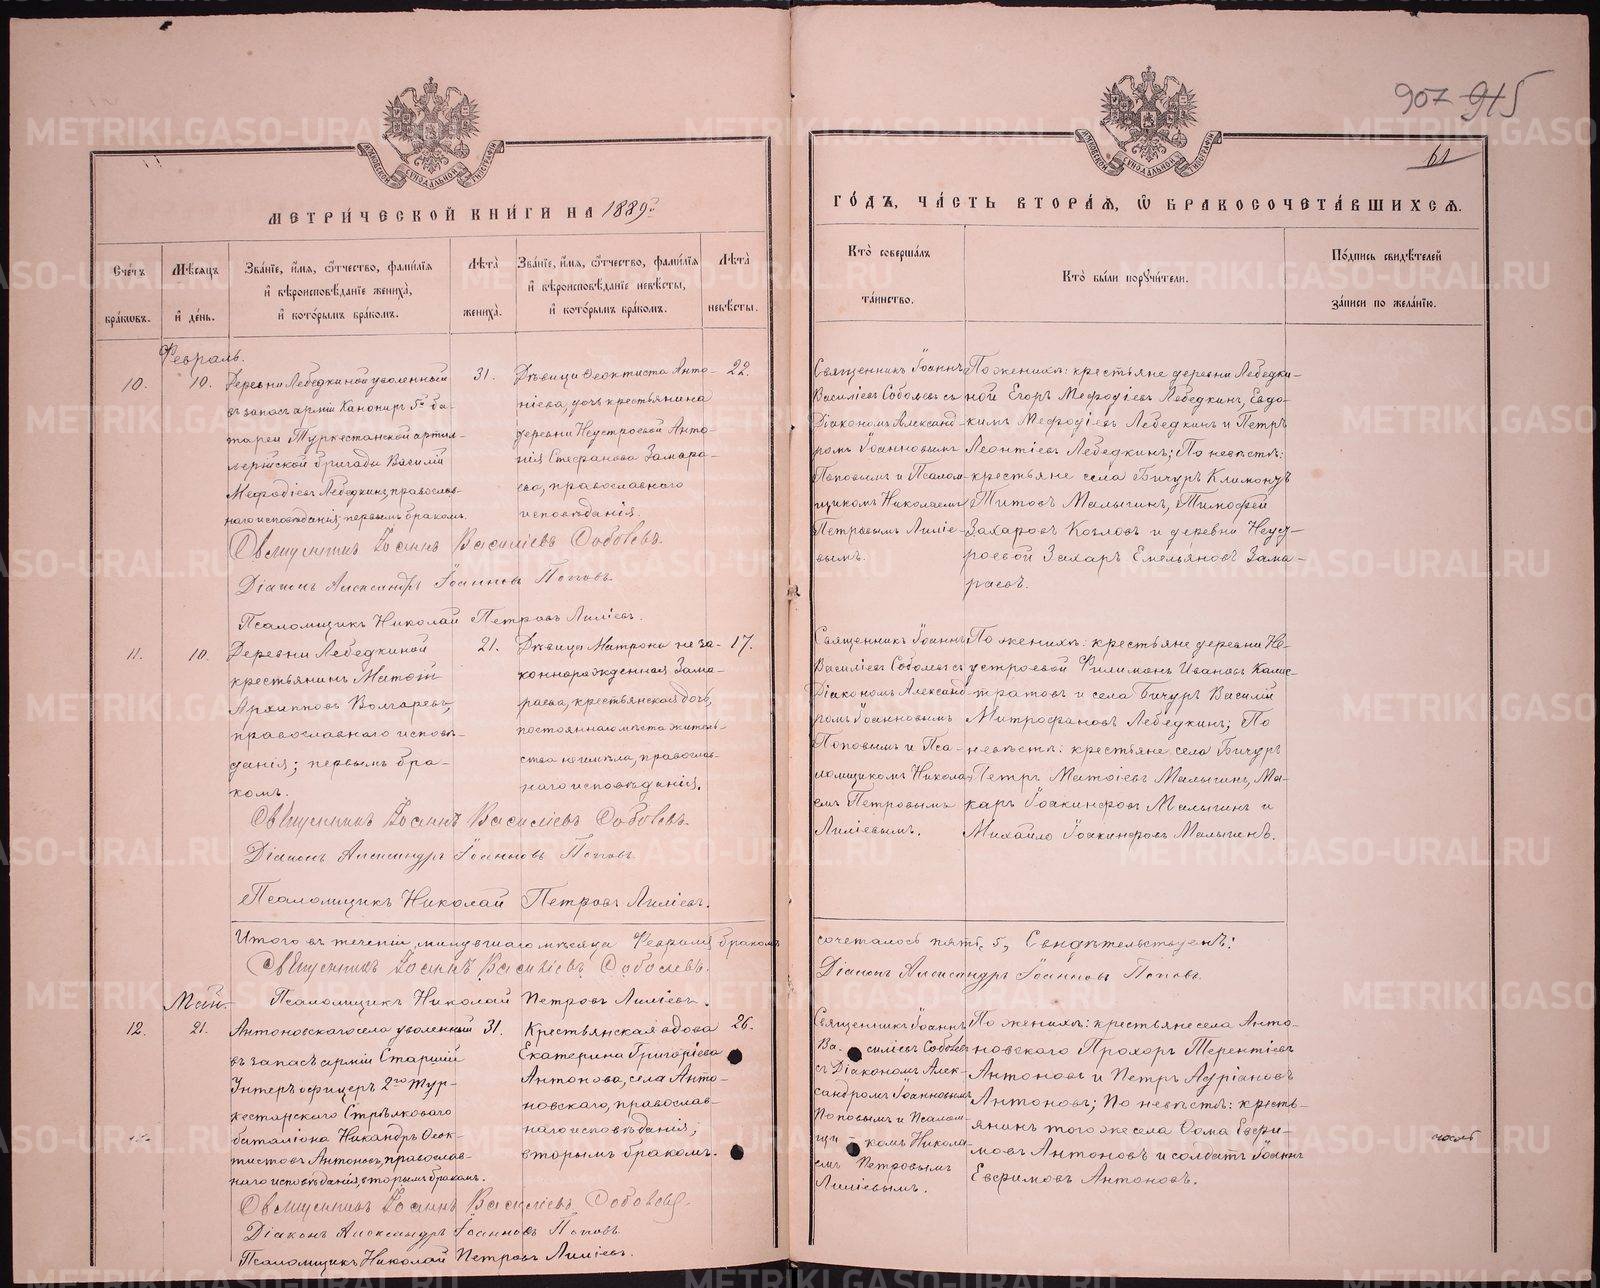 907 915
61
МЕТРИ́ЧЕСКОЙ КНИ́ГИ НА 1889й
ГО́ДЪ, ЧА́СТЬ ВТОРА́Я, Ѡ БРАКОСОЧЕТА́ВШИХСЯ.
Сче́тъ бра́кωвъ.
Мѣ́сяцъ и҆ де́нь.
Зва́нїе, и҆́мя, ѻ҆́тчество, фами́лїя
и҆ вѣроисповѣ́данїе жениха̀,
и҆ кото́рымъ бра́комъ.
Лѣ́та жениха̀.
Зва́нїе, и҆́мя, ѻ҆́тчество, фами́лїя
и҆ вѣроисповѣ́данїе невѣ́сты,
и҆ кото́рымъ бра́комъ.
Лѣ́та невѣ́сты.
Кто̀ соверша́лъ
та́инство.
Кто̀ бы́ли порꙋчи́тели.
По́дпись свидѣ́телей
за́писи по жела́нїю.
Февраль.
10.
10.
Деревни Лебедкиной уволенный
въ запасъ арміи Канониръ 5й ба-
тареи Туркестанской артил-
лерійской бригады Василій
Меѳодіевъ Лебедкинъ, православ-
наго исповѣданія, первымъ бракомъ.
31.
Дѣвица Ѳеоктиста Анто-
ніева, дочь крестьянина
деревни Неустроевой Анто-
нія Стефанова Замара-
ева, православнаго
исповѣданія.
22.
Священникъ Іоаннъ
Василіевъ Соболевъ съ
Діакономъ Александ-
ромъ Іоанновымъ
Поповымъ и Псалом-
щикомъ Николаемъ
Петровымъ Лиліе-
вымъ.
По женихѣ: крестьяне деревни Лебедки-
ной Егоръ Меѳодіевъ Лебедкинъ, Евдо-
кимъ Меѳодіевъ Лебедкинъ и Петръ
Леонтіевъ Лебедкинъ; По невѣстѣ:
крестьяне села Бичуръ Климонтъ
Титовъ Малыгинъ, Тимофей
Захаровъ Козловъ и деревни Неуст-
роевой Захаръ Емельяновъ Зама-
раевъ.
Священникъ Іоаннъ Василіевъ Соболевъ.
Діаконъ Александръ Іоанновъ Поповъ.
Псаломщикъ Николай Петровъ Лиліевъ.
11.
10.
Деревни Лебедкиной
крестьянинъ Матѳій
Архипповъ Волгаревъ,
православнаго исповѣ-
данія; первымъ бра-
комъ.
21.
Дѣвица Матрона неза-
коннорожденная Зама-
раева, крестьянская дочь,
постояннаго мѣста житель-
ства неимѣла, православ-
наго исповѣданія.
17.
Священникъ Іоаннъ
Василіевъ Соболевъ съ
Діакономъ Александ-
ромъ Іоанновымъ
Поповымъ и Пса-
ломщикомъ Никола-
емъ Петровымъ
Лиліевымъ.
По женихѣ: крестьяне деревни Не-
устроевой Филимонъ Ивановъ Калис-
тратовъ и села Бичуръ Василій
Митрофановъ Лебедкинъ; По
невѣстѣ: крестьяне села Бичуръ
Петръ Матѳіевъ Малыгинъ, Ма-
каръ Іоакинфовъ Малыгинъ и
Михайло Іоакинфовъ Малыгинъ.
Священникъ Іоаннъ Василіевъ Соболевъ.
Діаконъ Александръ Іоанновъ Поповъ
Псаломщикъ Николай Петровъ Лиліевъ.
Итого въ теченіи минувшаго мѣсяца Февраля бракомъ
сочеталось пять, 5, Свидѣтельствуемъ:
Священникъ Іоаннъ Василіевъ Соболевъ.
Діаконъ Александръ Іоанновъ Поповъ.
Псаломщикъ Николай Петровъ Лиліевъ.
Май.
12.
21.
Антоновскаго села уволенный
въ запасъ арміи Старшій
Унтеръ офицеръ 2го Тур-
кестанскаго Стрѣлковаго
баталіона Никандръ Ѳеок-
тистовъ Антоновъ, православ-
наго исповѣданія, вторымъ бракомъ.
31.
Крестьянская вдова
Екатерина Григоріева
Антонова, села Анто-
новскаго, православ-
наго исповѣданія;
вторымъ бракомъ.
26.
Священникъ Іоаннъ
Василіевъ Соболевъ
съ Діакономъ Алек-
сандромъ Іоанновымъ
Поповымъ и Псалом-
щи-комъ Никола-
емъ Петровымъ
Лиліевымъ.
По женихѣ: крестьяне села Анто-
новскаго Прохоръ Терентіевъ
Антоновъ и Петръ Адріановъ
Антоновъ; По невѣстѣ: кресть-
янинъ того же села Ѳома Евфи-
мовъ Антоновъ и солдатъ Іоаннъ
Евфимовъ Антоновъ.
Священникъ Іоаннъ Василіевъ Соболевъ.
Діаконъ Александръ Іоанновъ Поповъ
Псаломщикъ Николай Петровъ Лиліевъ.